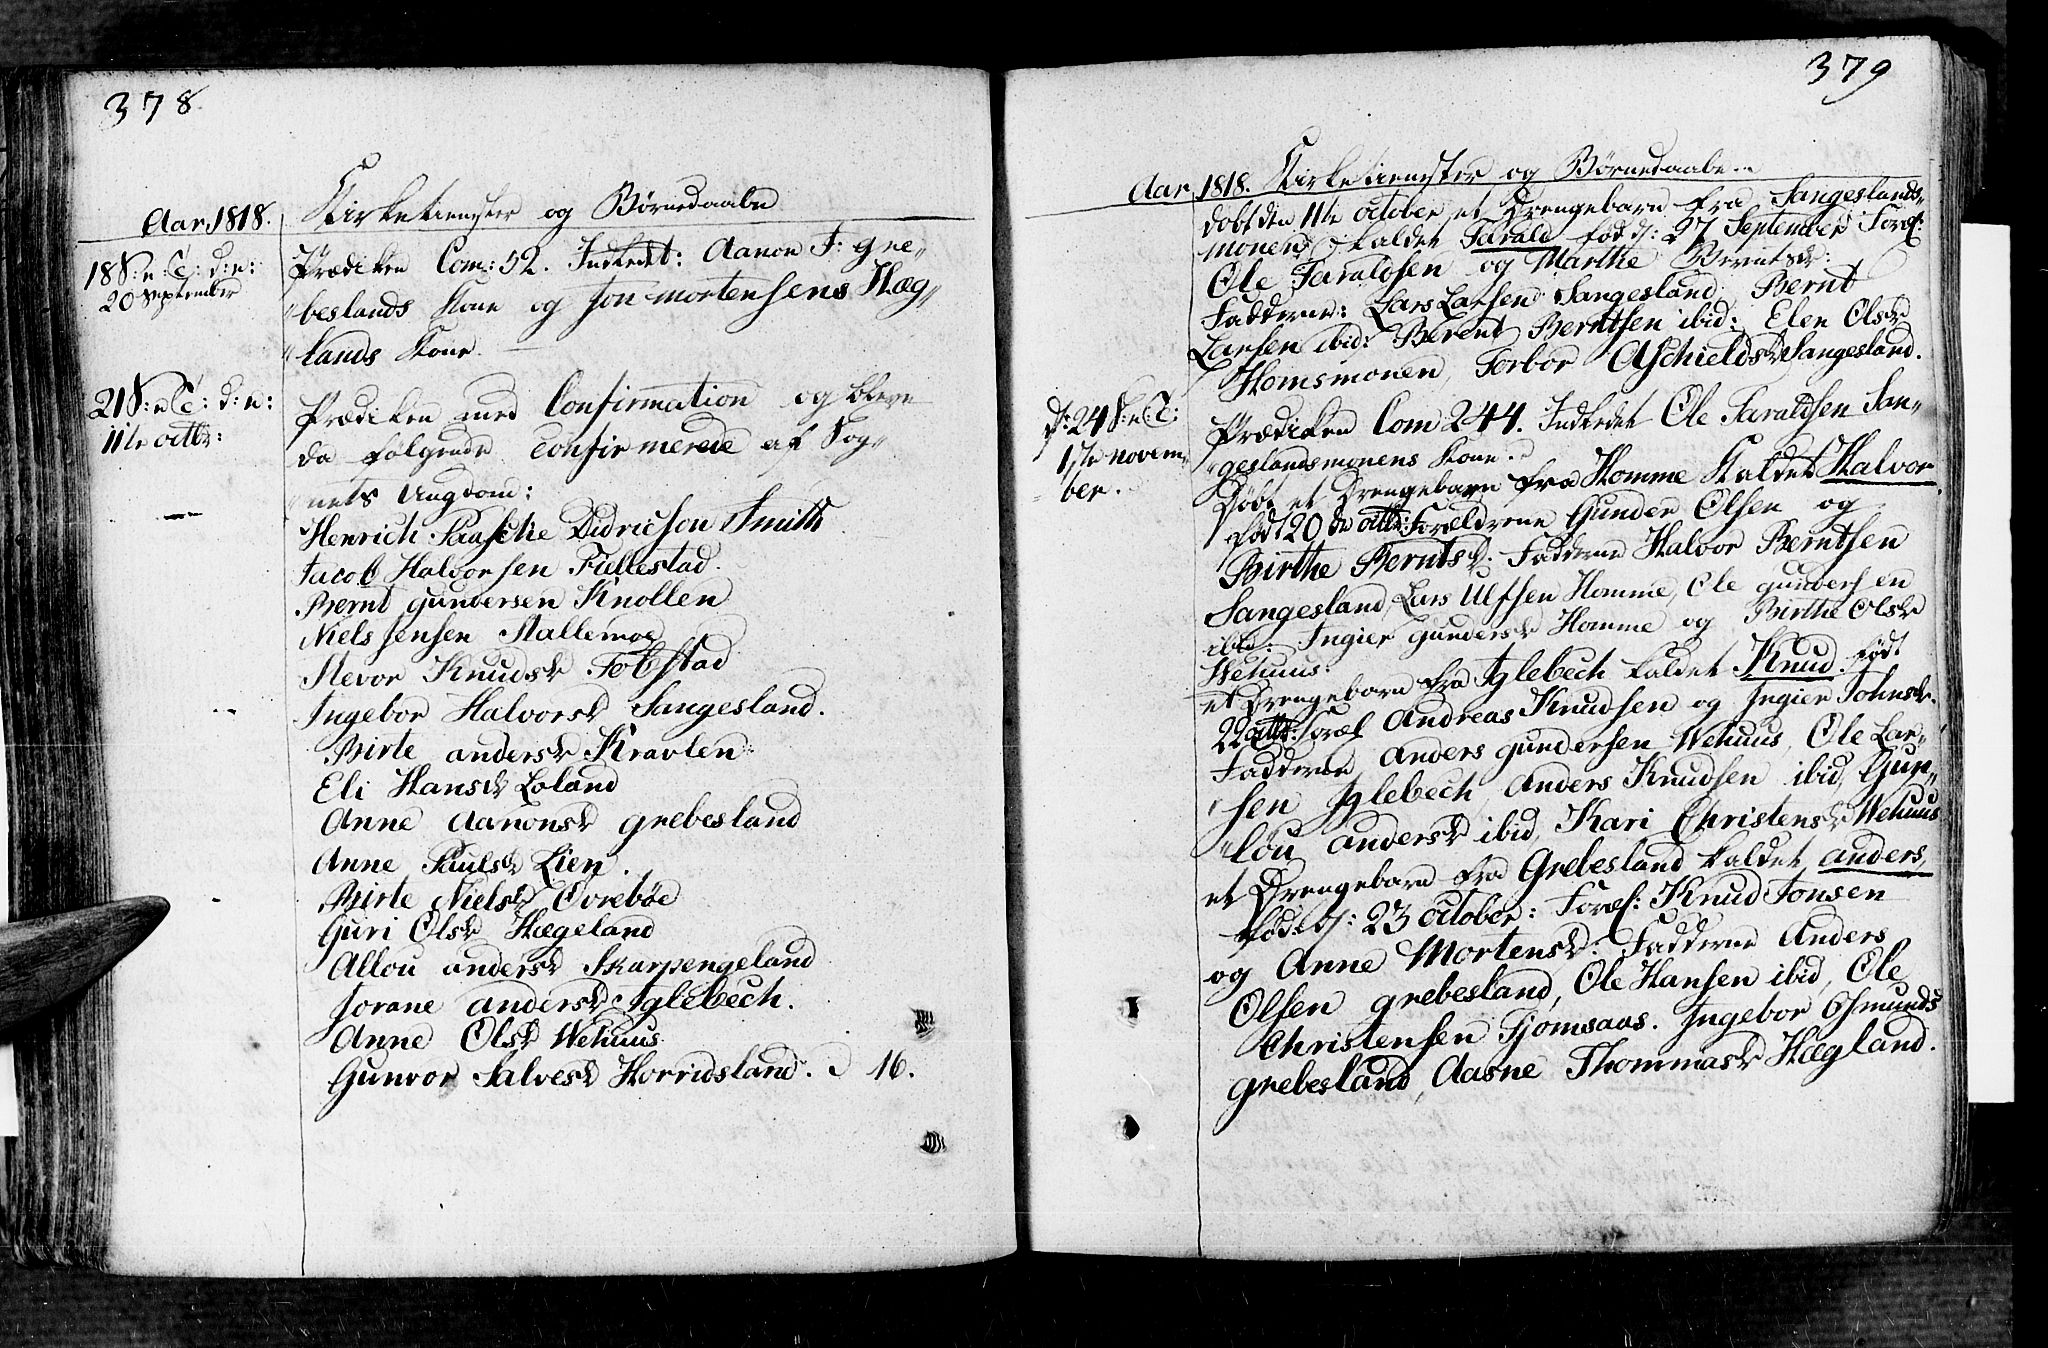 378
Aar 1818.
Kirketienester og Børnedaabe
18 S: e: T: d: n:
20 September
Prædiken Com: 52. Indledt: Aanon T: Gre„
„beslands Kone og Jon Mortensens Hæg„
„lands Kone.
21 S: e T: d: n:
11te octbr:
Prædiken med Confirmation og bleve
da følgende confirmerede af Sog„
„nets Ungdom:
Henrich Paasche Didricson Smith
Jacob Halvorsen Fiellestad.
Bernt Gundersen Knollen
Niels Jensen Stallemoe
Stevor Knudsd. Tobstad
Ingebor Halvorsd Sangesland.
Birte Andersd Kravlen.
Eli Hansd Loland
Anne Aanonsd Grebesland
Anne Paulsd Lien.
Birte Nielsd Øvrebøe
Guri Olsd Hægeland
Allou Andersd Skarpengeland
Jorane Andersd Iglebech.
Anne Olsd Wehuus
Gunvor Salvesd Horridsland. 16.
379
Aar 1818. Kirketienester og Børnedaabe..
døbt den 11te october et Drengebarn fra Sangeslands„
monen kaldet Tarald fød d: 27 September Foræl:
Ole Taraldsen og Marthe Berntsd:
Fadderne: Lars Larsen Sangesland, Bernt
Larsen ibid: Berent Berntsen ibid: Elen Olsd
Homsmonen, Torbor Aschieldsd Sangesland.
d: 24 S: e T:
1ste novem„
ber.
Prædiken Com 244. Indledet Ole Taraldsen San„
„geslandsmonens Kone.
Døbt et Drengebarn fra Homme kaldet Halvor
født 20de octbr: Forældrene Gunder Olsen og
Birthe Berntsd. Fadderne Halvor Berntsen
Sangesland, Lars Ulfsen Homme, Ole Gundersen
ibid: Ingier Gundersd Homme og Birthe Olsd
Wehuus:
et Drengebarn fra Iglebech kaldet Knud født
22 octbr: Foræl Andreas Knudsen og Ingier Johnsd.
Fadderne Anders Gundersen Wehuus, Ole Lar„
„sen Iglebech, Anders Knudsen ibid, Gun„
„lou Andersd ibid, Kari Christensd Wehuus
et Drengebarn fra Grebesland kaldet Anders,
fødet d: 23 October: Foræl: Knud Jonsen
og Anne Mortensd: Fadderne Anders
Olsen Grebesland, Ole Hansen ibid, Ole
Christensen Fjomsaas. Ingebor Osmunds
Grebesland, Aasne Thommasd Hægland.